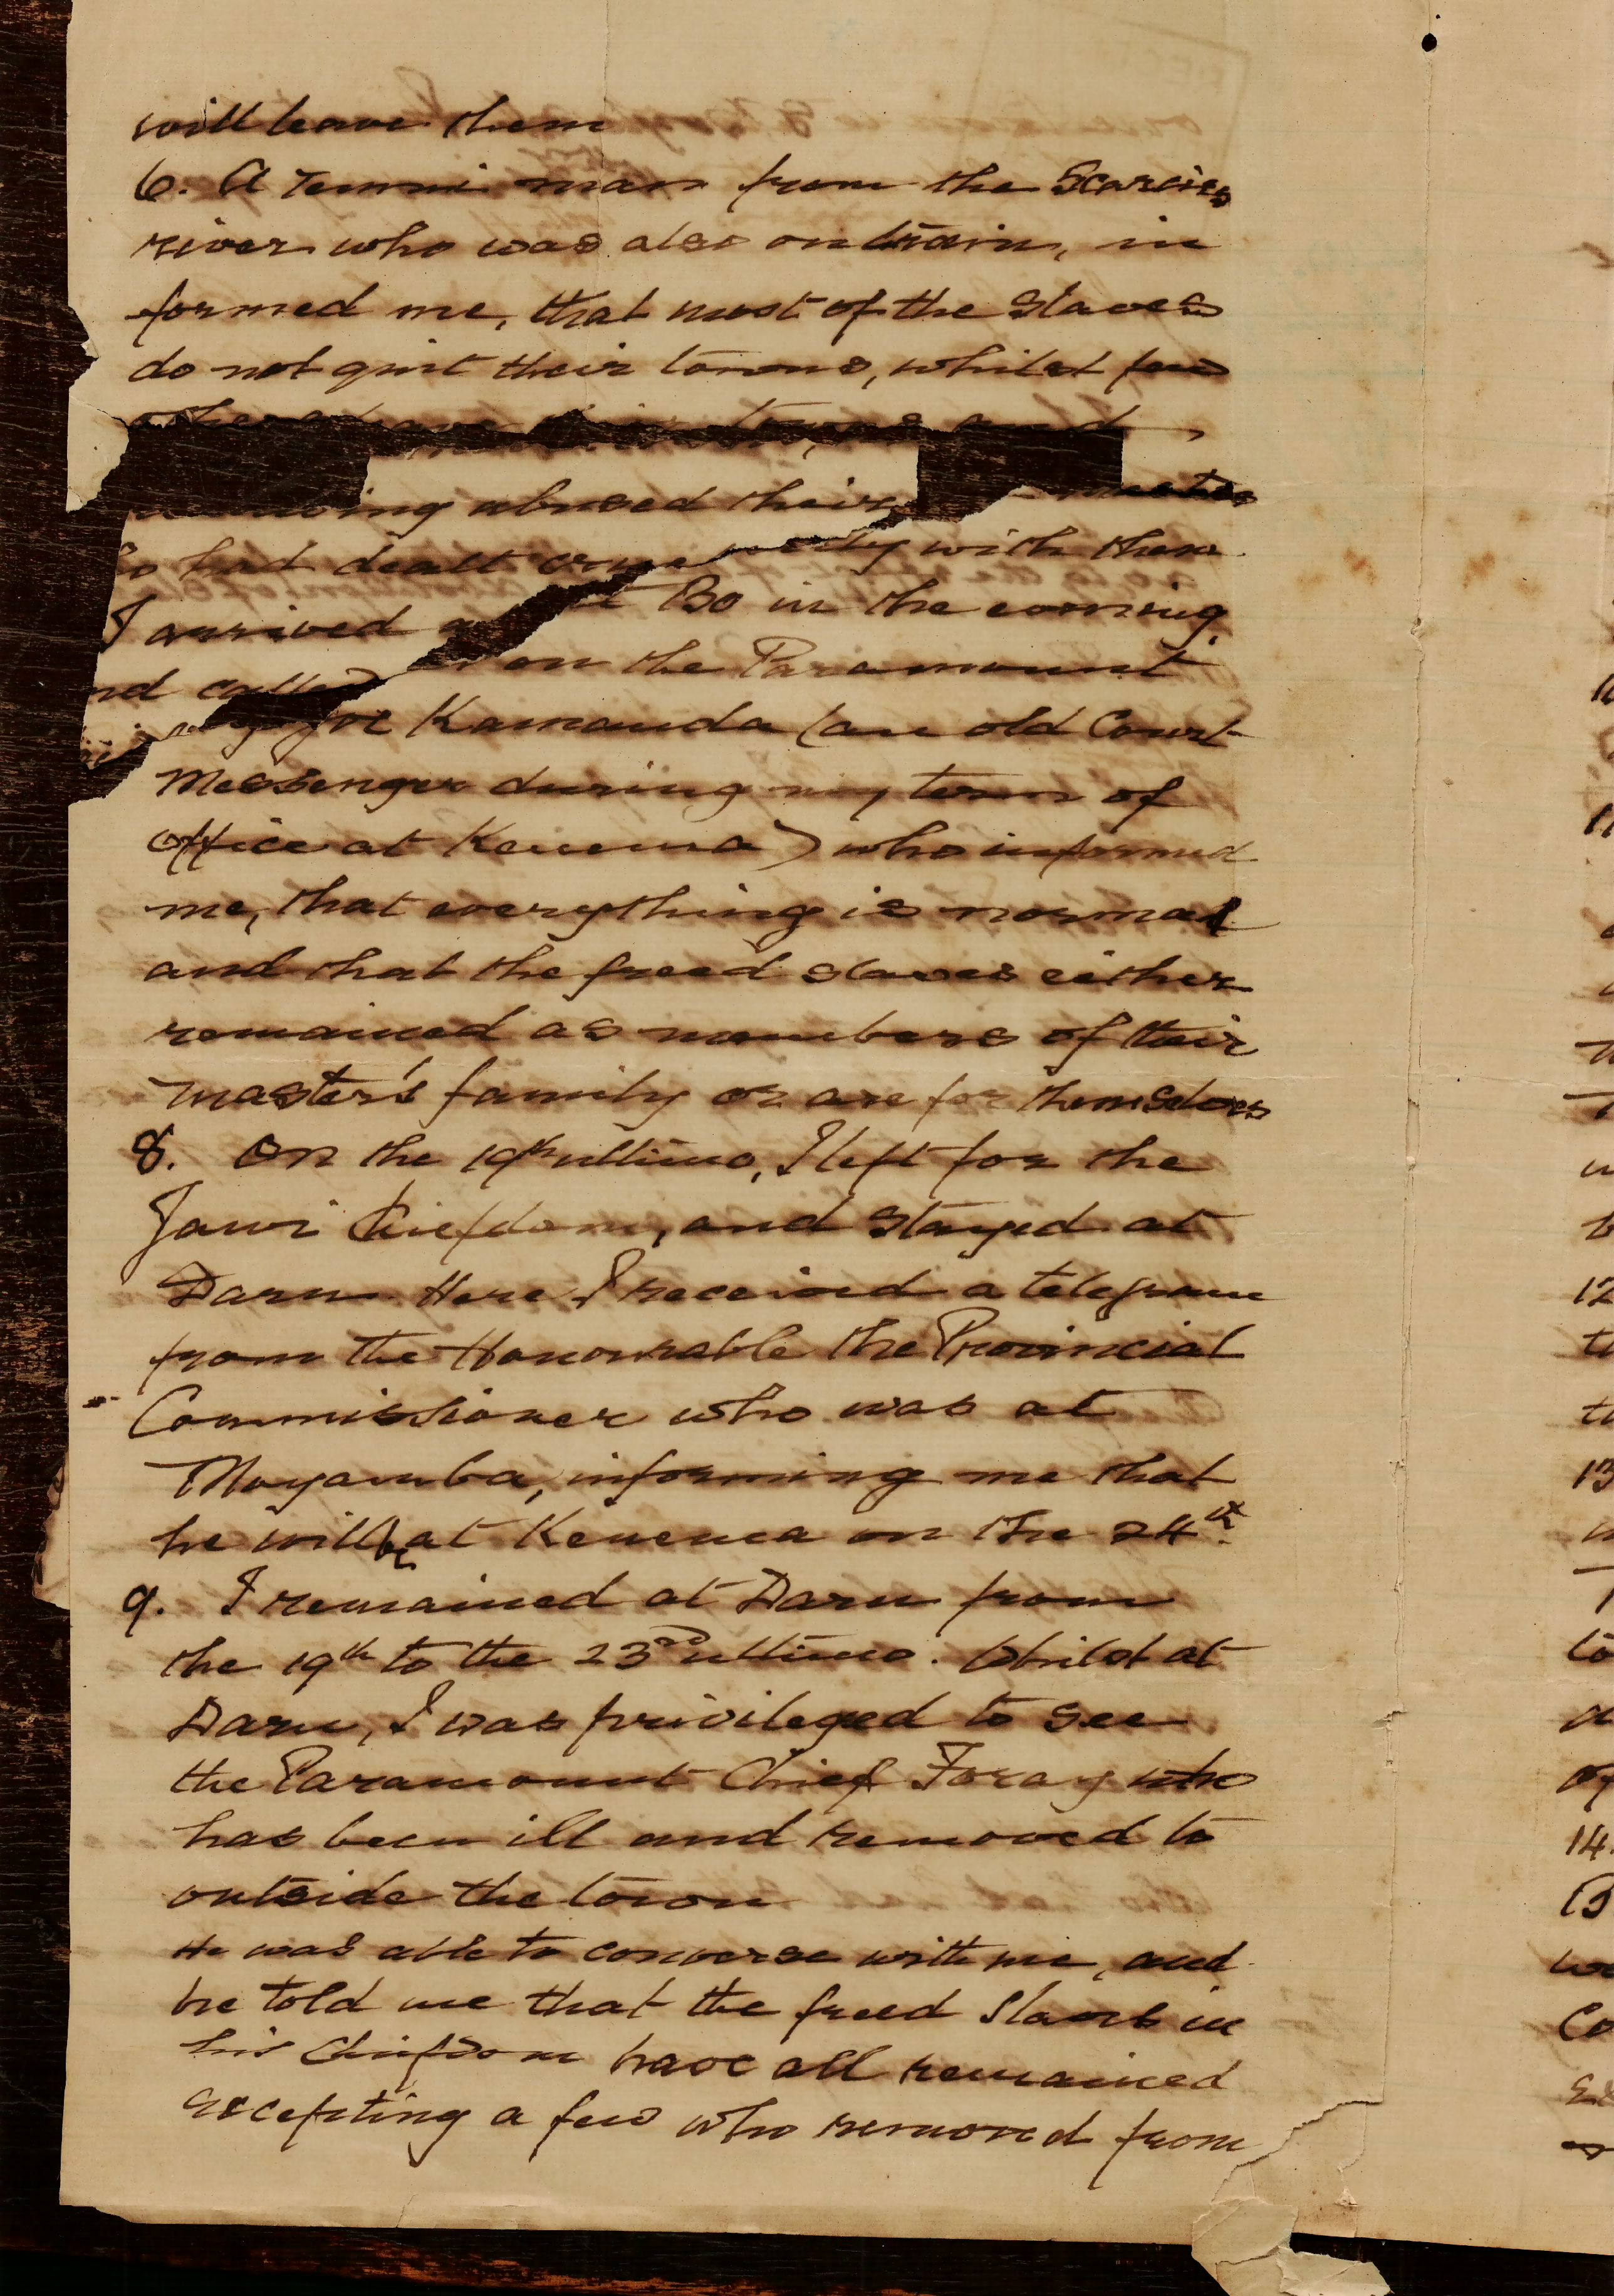 will leave them
6. A Temni man from the Scarcies
river who was also on train, in
formed me, that most of the Slaves
do not quit their towns, whilst few
towns and
abused their master
had dealt with them
I arrived at Bo in the evening,
nd called on the Paramount
Joe Kamanda (an old Court
Messenger during my term of
office at Kenema) who informed
me, that everything is normal
and that the freed slaves either
remained as members of their
master's family or are for themselves
8. On the 19th ultimo, I left for the
Jawi Chiefdom, and stayed at
Daru. Here I received a telegram
from the Honourable the Provincial
Commissioner who was at
Moyamba, informing me that
he will be at Kenema on the 24th.
9. I remained at Daru from
the 19th to the 23rd ultimo. Whilst at
Daru, I was privileged to see
the Paramount Chief Foray who
has been ill and removed to
outside the town
He was able to converse with me, and
he told me that the freed Slaves in
his Chiefdom have all remained
excepting a few who removed from
12
13
14.